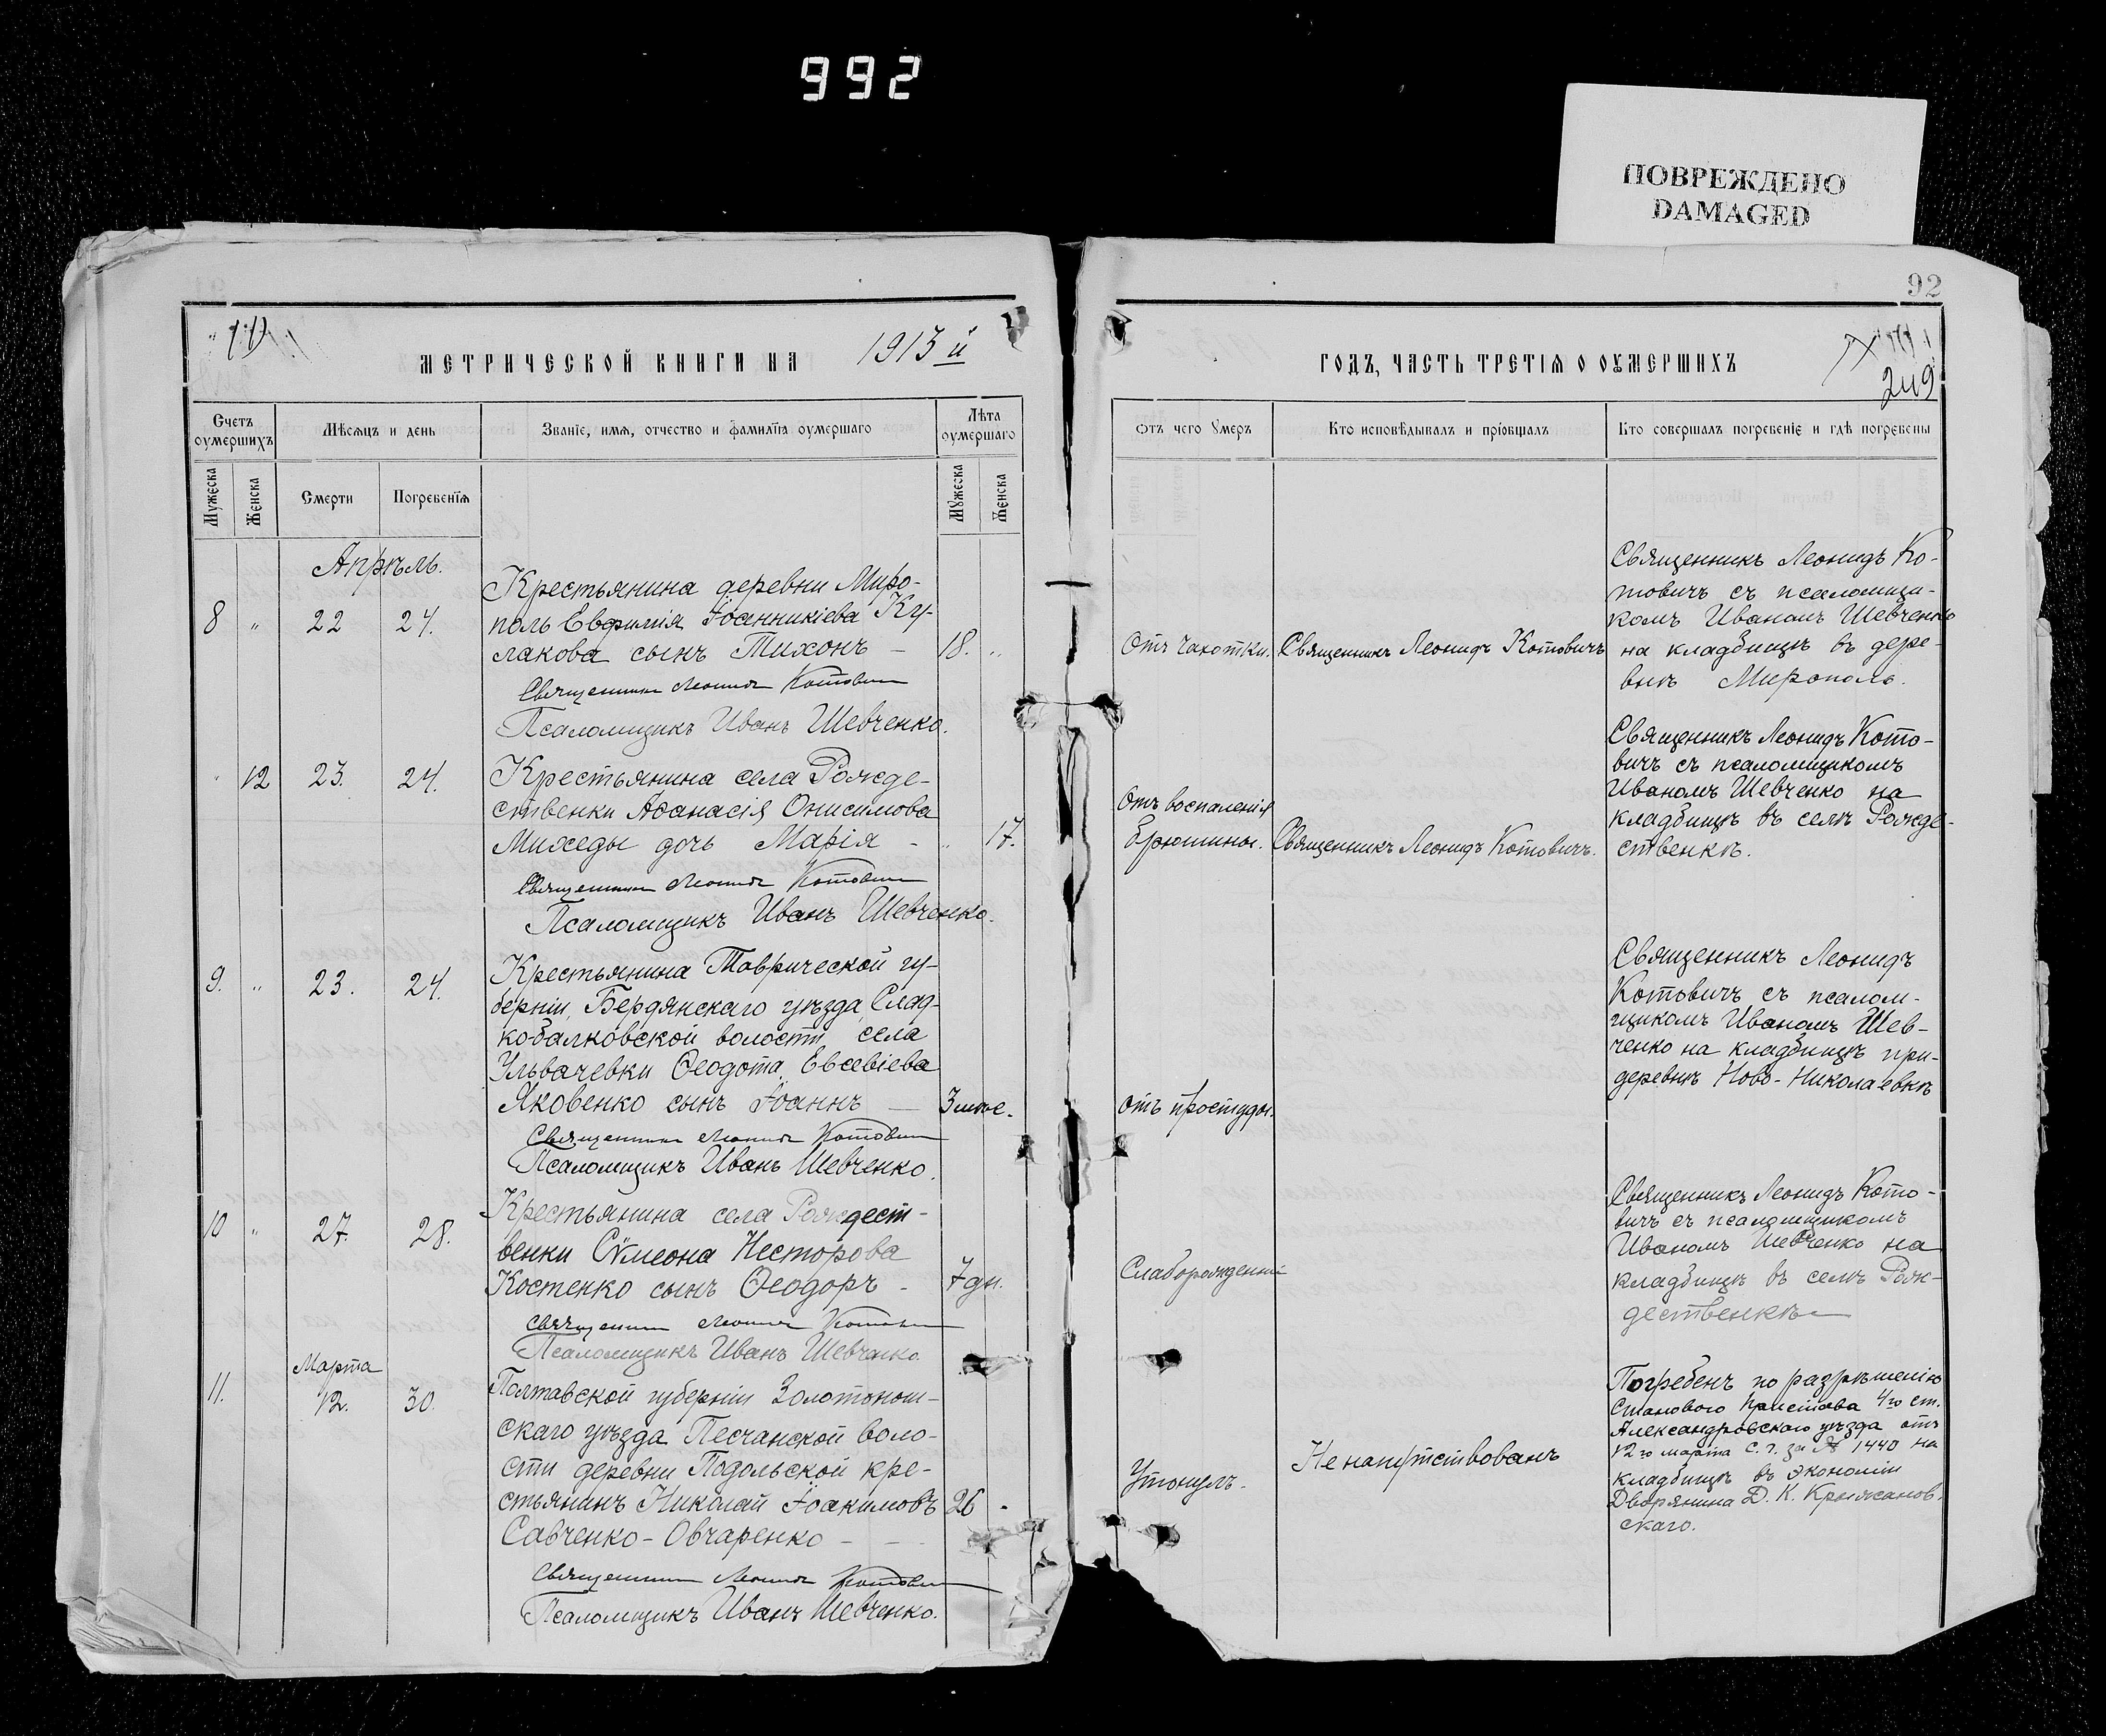 992
ПОВРЕЖДЕНО
DAMAGED
92
МЕТРИЧЕСКОЙ КНИГИ НА 1913 й
ГОДЪ, ЧАСТЬ ТРЕТІѦ О ОУМЕРШИХЪ
249
Счетъ оумершихъ
Мѣсяцъ и день
Званіе, имя, отчество и фамилїя оумершаго
Лѣта оумершаго
Ѿтъ чего Умеръ
Кто исповѣдывалъ и прїобщалъ
Кто совершалъ погребенїе и гдѣ погребены
Мужеска
Женска
Смерти
Погребенїя
Мужеска
Женска
Апрѣль.
8 " 22 24.
Крестьянина деревни Миро-
поль Евфимія Іоанникіева Ку-
лакова сынъ Тихонъ — 18. "
Священникъ Леонидъ Котовичъ
Псаломщикъ Иванъ Шевченко.
Отъ чахотки.
Священникъ Леонидъ Котовичъ
Священникъ Леонидъ Ко-
товичъ съ псаломщи-
комъ Иваномъ Шевченко
на кладбищѣ въ дере-
внѣ Мирополь.
" 12 23. 24.
Крестьянина села Рожде-
ственки Аѳанасія Онисимова
Михеды дочь Марія - " 17.
Священникъ Леонидъ Котовичъ
Псаломщикъ Иванъ Шевченко.
Отъ воспаленія
брюшины.
Священникъ Леонидъ Котовичъ.
Священникъ Леонидъ Кото-
вичъ съ псаломщикомъ
Иваномъ Шевченко на
кладбищѣ въ селѣ Рожде-
ственкѣ.
9. " 23. 24.
Крестьянина Таврической гу-
берніи, Бердянскаго уѣзда, Слад-
кобалковской волости, села
Ульвачевки Ѳеодота Евсевіева
Яковенко сынъ Іоаннъ — 3 мѣс.
Священникъ Леонидъ Котовичъ
Псаломщикъ Иванъ Шевченко.
Отъ простуды.
Священникъ Леонидъ
Котовичъ съ псалом-
щикомъ Иваномъ Шев-
ченко на кладбищѣ при-
деревнѣ Ново-Николаевкѣ
10 " 27. 28.
Крестьянина села Рождест-
венки Сѵмеона Несторова
Костенко сынъ Ѳеодоръ - 7 дн.
Священникъ Леонидъ Котовичъ
Псаломщикъ Иванъ Шевченко.
Слаборожденный
Священникъ Леонидъ Кото-
вичъ съ псаломщикомъ
Иваномъ Шевченко на
кладбищѣ въ селѣ Рож-
дественкѣ
Марта
11. 12. 30.
Полтавской губерніи Золотонош-
скаго уѣзда Песчанской воло-
сти деревни Подольской кре-
стьянинъ Николай Іоакимовъ 26 -
Савченко-Овчаренко - - -
Священникъ Леонидъ Котовичъ
Псаломщикъ Иванъ Шевченко.
Утонулъ.
Не напутствованъ
Погребенъ по разрѣшенію
Станового Пристава 4го ст.
Александровскаго уѣзда отъ
12го марта с. г. за № 1440 на
кладбищѣ въ экономіи
Дворянина Д. К. Крыжанов-
скаго.